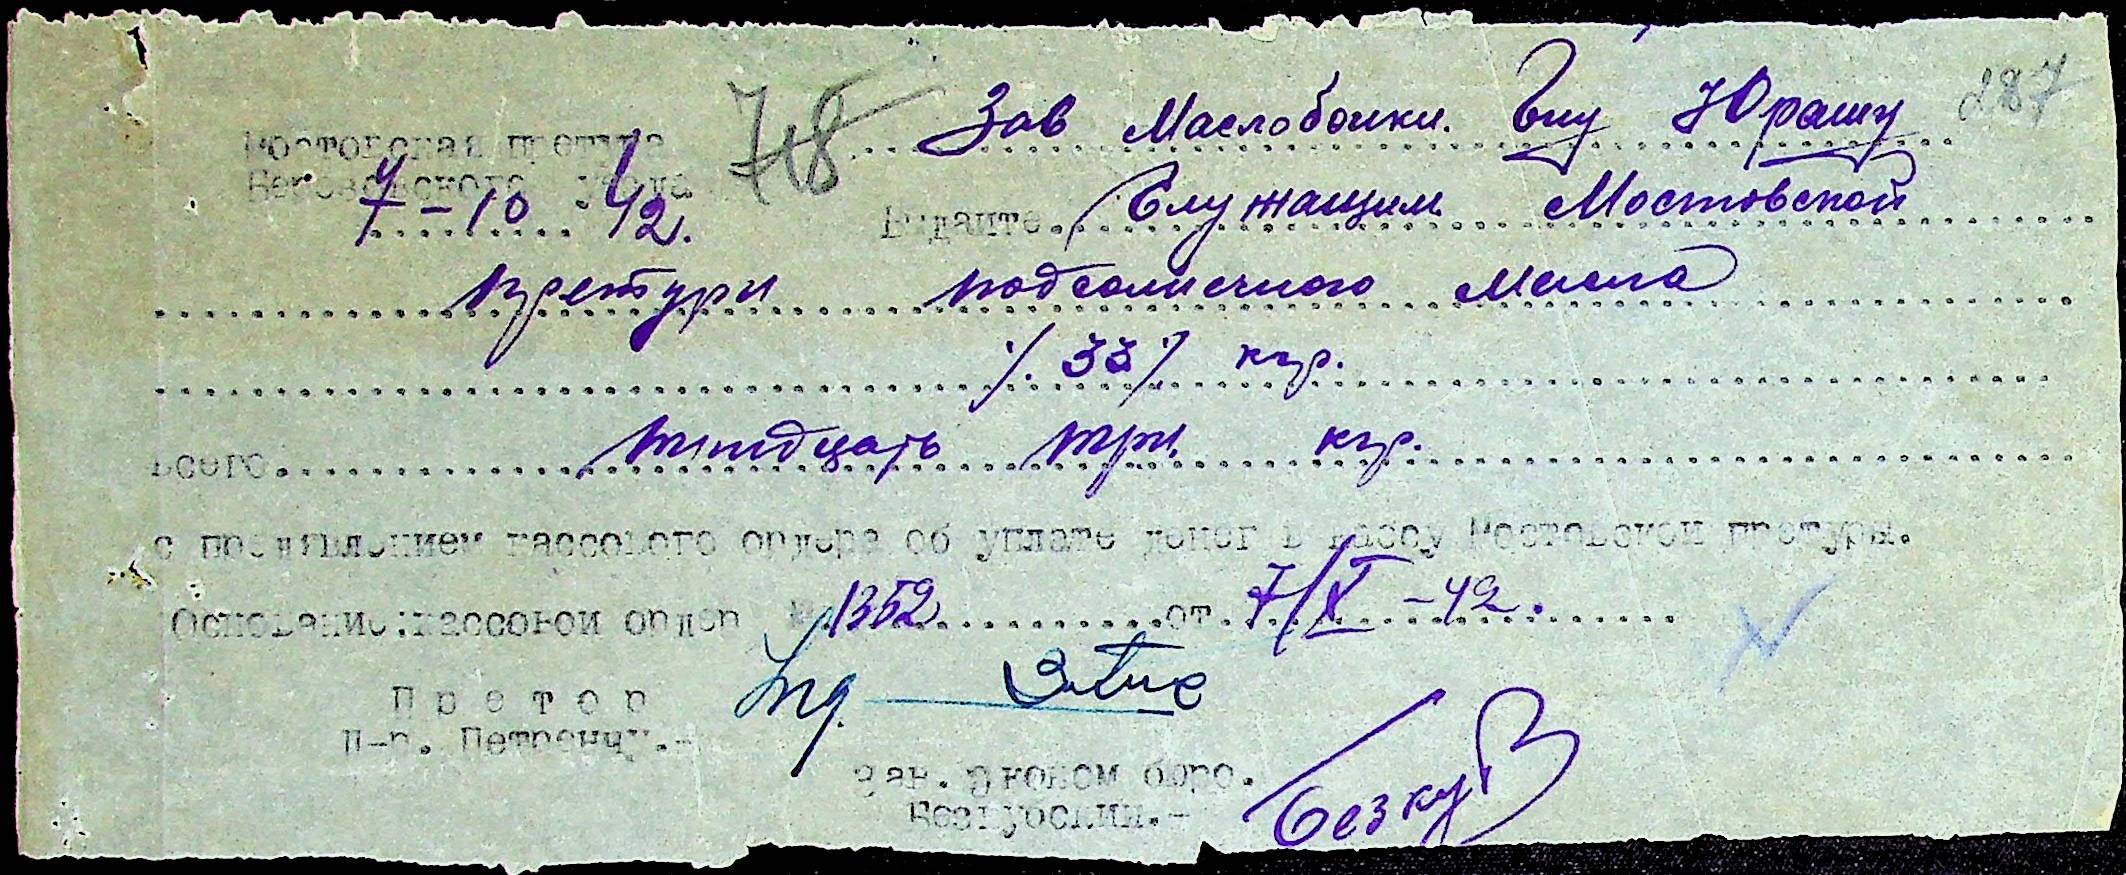 Мостовская претура
Березовского уезда
7-10 42.
718
287
Зав Маслобойки. Гну Юрашу
Выдайте Служащим Мостовской
претуры подсолнечного масла
/. 33 /. кгр.
Всего тридцать три кгр.
с предявлением кассового ордера об уплате денег в кассу Мостовской претуры.
Основание: кассовой ордер № 1352 от 7/X -42.
Претор
П-р. Петреску.-
Зав. Эконом бюро.